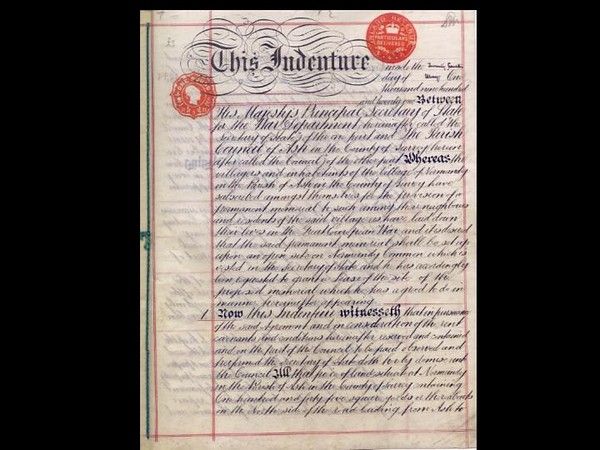 This Indenture made the
day of One
thousand nine hundred
and twenty one Between
His Majestys Principal Secretary of State
for the War Department hereinafter called the
Secretary of State of the one part and The Parish
Council of Ash in the County of Surrey herein
after called the Council of the other part Whereas the
villagers and inhabitants of the Village of Normandy
in the Parish of Ash in the County of Surrey have
subscribed amongst themselves for the provision of a
permanent memorial to such among their neighbours
and residents of the said village as have laid down
their lives in the Great European War and it is desired
that the said permanent memorial shall be set up
upon an open site on Normandy Common which is
vested in the Secretary of State and he has accordingly
been requested to grant a Lease of the site of the
proposed memorial which he has agreed to do in
manner hereinafter appearing
1 Now this Indenture witnesseth that in pursuance
of the said Agreement and in consideration of the rent
covenants and conditions hereinafter reserved and contained
and on the part of the Council to be paid observed and
performed the Secretary of State doth hereby demise unto
the Council All that piece of land situate at Normandy
in the Parish of Ash in the County of Surrey containing
One hundred and forty five square yards or thereabouts
on the North side of the road leading from Ash to
INLAND REVENUE
PARTICULARS
DELIVERED